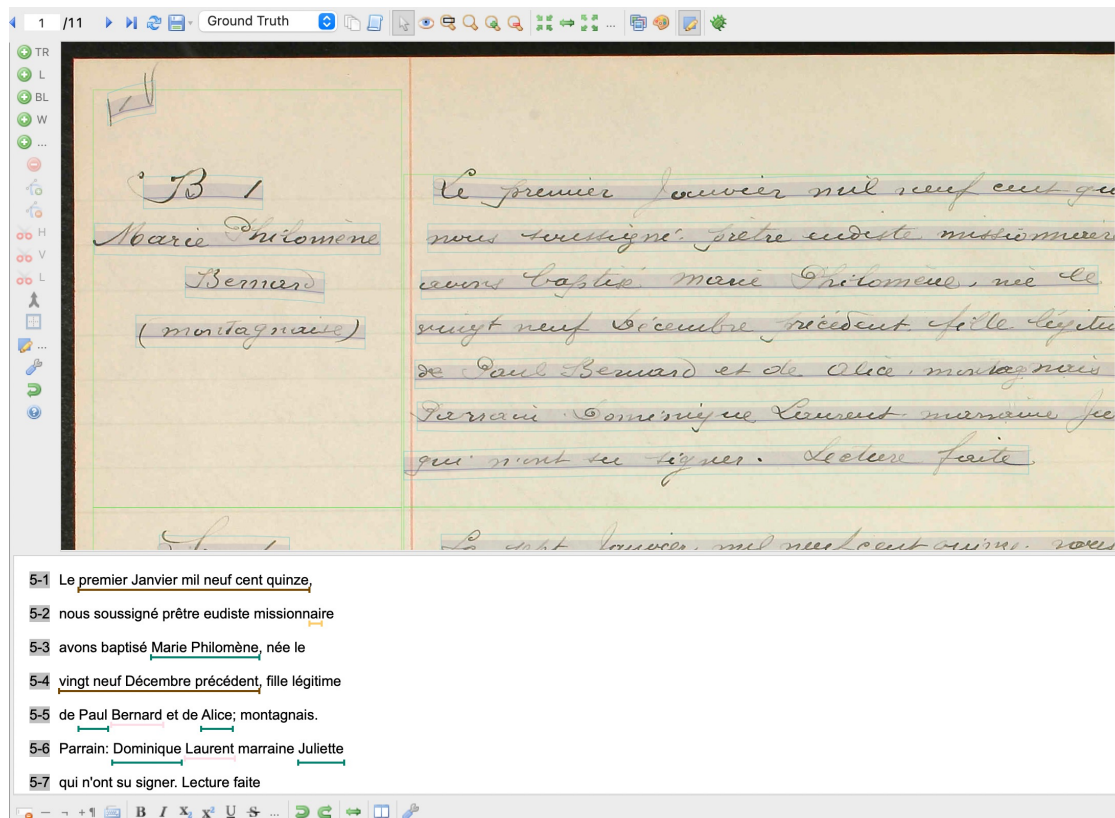 1 /11 Ground Truth
TR
L
BL
W
...
H
V
L
...
B 1
Marie Philomène
Bernard
(montagnaise)
Le premier Janvier mil neuf cent qu
nous soussigné. prêtre eudiste missionnaire
avons baptisé Marie Philomène, née le
vingt neuf Décembre précédent. fille légitu
de Paul Bernard et de Alice, montagnais
Parrain. Dominique Laurent marraine Ju
qui n'ont su signer. Lecture faite
Le sept Janvier, mil neuf cent quinze. nous
5-1 Le premier Janvier mil neuf cent quinze,
5-2 nous soussigné prêtre eudiste missionnaire
5-3 avons baptisé Marie Philomène, née le
5-4 vingt neuf Décembre précédent, fille légitime
5-5 de Paul Bernard et de Alice; montagnais.
5-6 Parrain: Dominique Laurent marraine Juliette
5-7 qui n'ont su signer. Lecture faite
B I X₂ X² U S ...